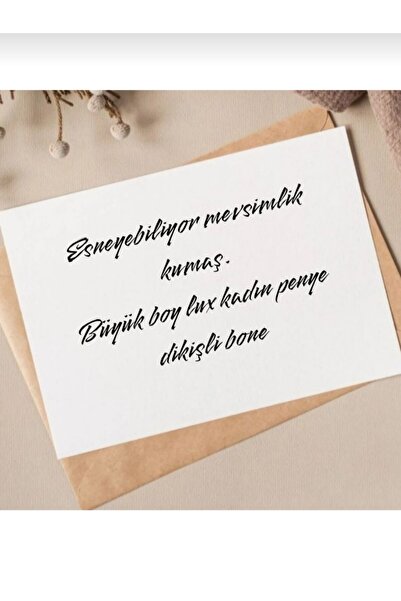 Esneyebiliyor mevsimlik
kumaş.
Büyük boy lux kadın penye
dikişli bone